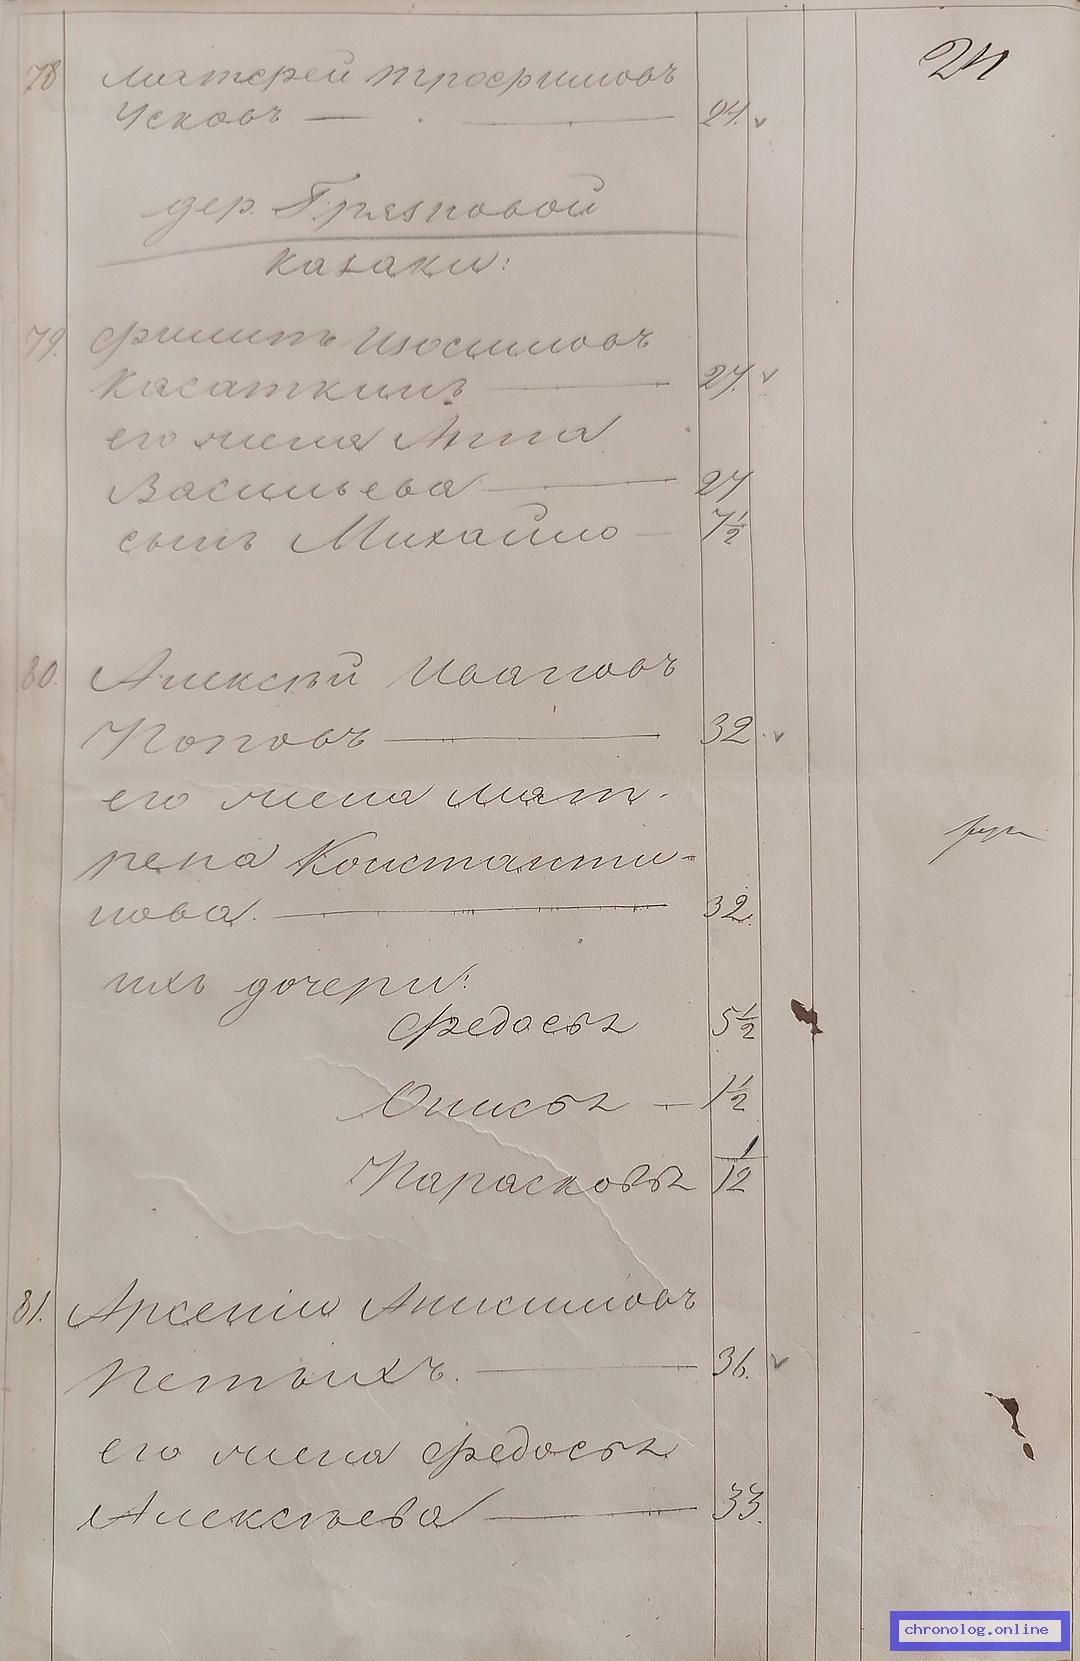 24
78 Матфей Трофимовъ
Усковъ — 24.
дер. Грязновой
казаки:
79. Филипъ Изосимовъ
Касаткинъ — 27.
его жена Анна
Васильева — 27
сынъ Михайло — 7 1/2
80. Алексѣй Ивановъ
Поповъ — 32
его жена Мат-
рена Константи-
нова. — 32.
ихъ дочери:
Федосья 5 1/2
Описья — 1 1/2
Парасковья 1/12
81. Арсеній Анисимовъ
Петыхъ. — 36.
его жена Федосья
Алексѣева — 33.
chronolog.online